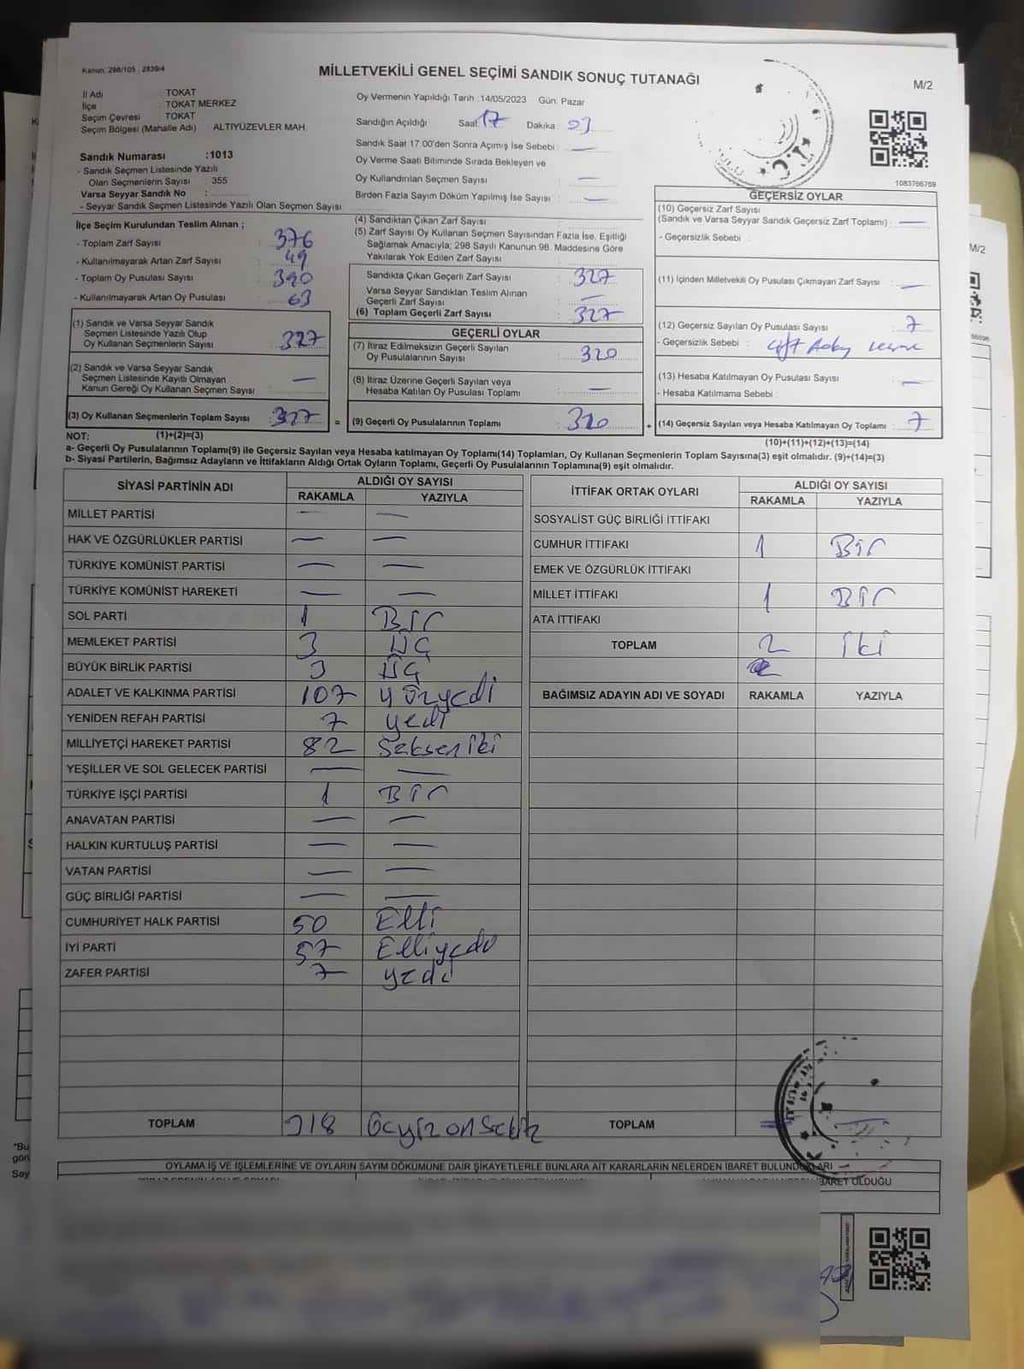 Kanun: 298/105 2839/4
MİLLETVEKİLİ GENEL SEÇİMİ SANDIK SONUÇ TUTANAĞI
M/2
İl Adı : TOKAT
İlçe : TOKAT MERKEZ
Seçim Çevresi : TOKAT
Seçim Bölgesi (Mahalle Adı) ALTIYÜZEVLER MAH.
Oy Vermenin Yapıldığı Tarih :14/05/2023 Gün: Pazar
Sandığın Açıldığı Saat: 17 Dakika: 03
Sandık Saat 17.00'den Sonra Açımış İse Sebebi : —
Oy Verme Saati Bitiminde Sırada Bekleyen ve
Oy Kullandırılan Seçmen Sayısı : —
Birden Fazla Sayım Döküm Yapılmış İse Sayısı : —
1083766769
Sandık Numarası :1013
- Sandık Seçmen Listesinde Yazılı
Olan Seçmenlerin Sayısı : 355
Varsa Seyyar Sandık No :
- Seyyar Sandık Seçmen Listesinde Yazılı Olan Seçmen Sayısı :
İlçe Seçim Kurulundan Teslim Alınan ;
- Toplam Zarf Sayısı : 376
- Kullanılmayarak Artan Zarf Sayısı : 49
- Toplam Oy Pusulası Sayısı : 390
- Kullanılmayarak Artan Oy Pusulası : 63
(1) Sandık ve Varsa Seyyar Sandık
Seçmen Listesinde Yazılı Olup
Oy Kullanan Seçmenlerin Sayısı : 327
(2) Sandık ve Varsa Seyyar Sandık
Seçmen Listesinde Kayıtlı Olmayan
Kanun Gereği Oy Kullanan Seçmen Sayısı : —
(3) Oy Kullanan Seçmenlerin Toplam Sayısı : 327
(4) Sandıktan Çıkan Zarf Sayısı :
(5) Zarf Sayısı Oy Kullanan Seçmen Sayısından Fazla İse, Eşitliği
Sağlamak Amacıyla; 298 Sayılı Kanunun 98. Maddesine Göre
Yakılarak Yok Edilen Zarf Sayısı :
Sandıkta Çıkan Geçerli Zarf Sayısı : 327
Varsa Seyyar Sandıktan Teslim Alınan
Geçerli Zarf Sayısı : —
(6) Toplam Geçerli Zarf Sayısı : 327
GEÇERLİ OYLAR
(7) İtiraz Edilmeksizin Geçerli Sayılan
Oy Pusulalarının Sayısı : 320
(8) İtiraz Üzerine Geçerli Sayılan veya
Hesaba Katılan Oy Pusulası Toplamı : —
= (9) Geçerli Oy Pusulalarının Toplamı : 320
GEÇERSİZ OYLAR
(10) Geçersiz Zarf Sayısı
(Sandık ve Varsa Seyyar Sandık Geçersiz Zarf Toplamı) : —
- Geçersizlik Sebebi :
(11) İçinden Milletvekili Oy Pusulası Çıkmayan Zarf Sayısı : —
(12) Geçersiz Sayılan Oy Pusulası Sayısı : 7
- Geçersizlik Sebebi : çift
(13) Hesaba Katılmayan Oy Pusulası Sayısı : —
- Hesaba Katılmama Sebebi :
+ (14) Geçersiz Sayılan veya Hesaba Katılmayan Oy Toplamı : 7
NOT: (1)+(2)=(3)
(10)+(11)+(12)+(13)=(14)
a- Geçerli Oy Pusulalarının Toplamı(9) ile Geçersiz Sayılan veya Hesaba katılmayan Oy Toplamı(14) Toplamları, Oy Kullanan Seçmenlerin Toplam Sayısına(3) eşit olmalıdır. (9)+(14)=(3)
b- Siyasi Partilerin, Bağımsız Adayların ve İttifakların Aldığı Ortak Oyların Toplamı, Geçerli Oy Pusulalarının Toplamına(9) eşit olmalıdır.
SİYASİ PARTİNİN ADI ALDIĞI OY SAYISI
RAKAMLA YAZIYLA
MİLLET PARTİSİ — —
HAK VE ÖZGÜRLÜKLER PARTİSİ — —
TÜRKİYE KOMÜNİST PARTİSİ — —
TÜRKİYE KOMÜNİST HAREKETİ — —
SOL PARTİ 1 Bir
MEMLEKET PARTİSİ 3 ÜÇ
BÜYÜK BİRLİK PARTİSİ 3 ÜÇ
ADALET VE KALKINMA PARTİSİ 107 yüzyedi
YENİDEN REFAH PARTİSİ 7 yedi
MİLLİYETÇİ HAREKET PARTİSİ 82 Seksen iki
YEŞİLLER VE SOL GELECEK PARTİSİ — —
TÜRKİYE İŞÇİ PARTİSİ 1 Bir
ANAVATAN PARTİSİ — —
HALKIN KURTULUŞ PARTİSİ — —
VATAN PARTİSİ — —
GÜÇ BİRLİĞİ PARTİSİ — —
CUMHURİYET HALK PARTİSİ 50 Elli
İYİ PARTİ 57 Elliyedi
ZAFER PARTİSİ 7 yedi
TOPLAM 318 üçyüz onsekiz
İTTİFAK ORTAK OYLARI ALDIĞI OY SAYISI
RAKAMLA YAZIYLA
SOSYALİST GÜÇ BİRLİĞİ İTTİFAKI
CUMHUR İTTİFAKI 1 Bir
EMEK VE ÖZGÜRLÜK İTTİFAKI
MİLLET İTTİFAKI 1 Bir
ATA İTTİFAKI
TOPLAM 2 iki
BAĞIMSIZ ADAYIN ADI VE SOYADI RAKAMLA YAZIYLA
TOPLAM
OYLAMA İŞ VE İŞLEMLERİNE VE OYLARIN SAYIM DÖKÜMÜNE DAİR ŞİKAYETLERLE BUNLARA AİT KARARLARIN NELERDEN İBARET BULUNDUKLARI
İBARET OLDUĞU
M/2